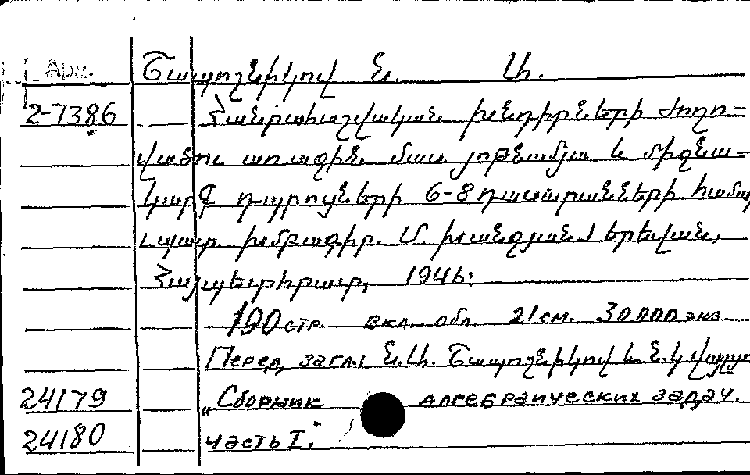 Арм.
Շապոշնիկով Ն. Ա.
2-7386 Հանրահաշվական խնդիրների ժողո-
վածու առաջին մաս յոթնամյա և միջնա-
կարգ դպրոցների 6-8 դասարանների համար
պատ. խմբագիր. Մ. Երևան,
Հայպետհրատ, 1946:
190 стр. вкл. обл. 21 см. 30000 экз
Перед загл: Ն.Ա. Շապոշնիկով և Ն.Կ.
24179 „Сборник алгебраических задач.
24180 часть I."